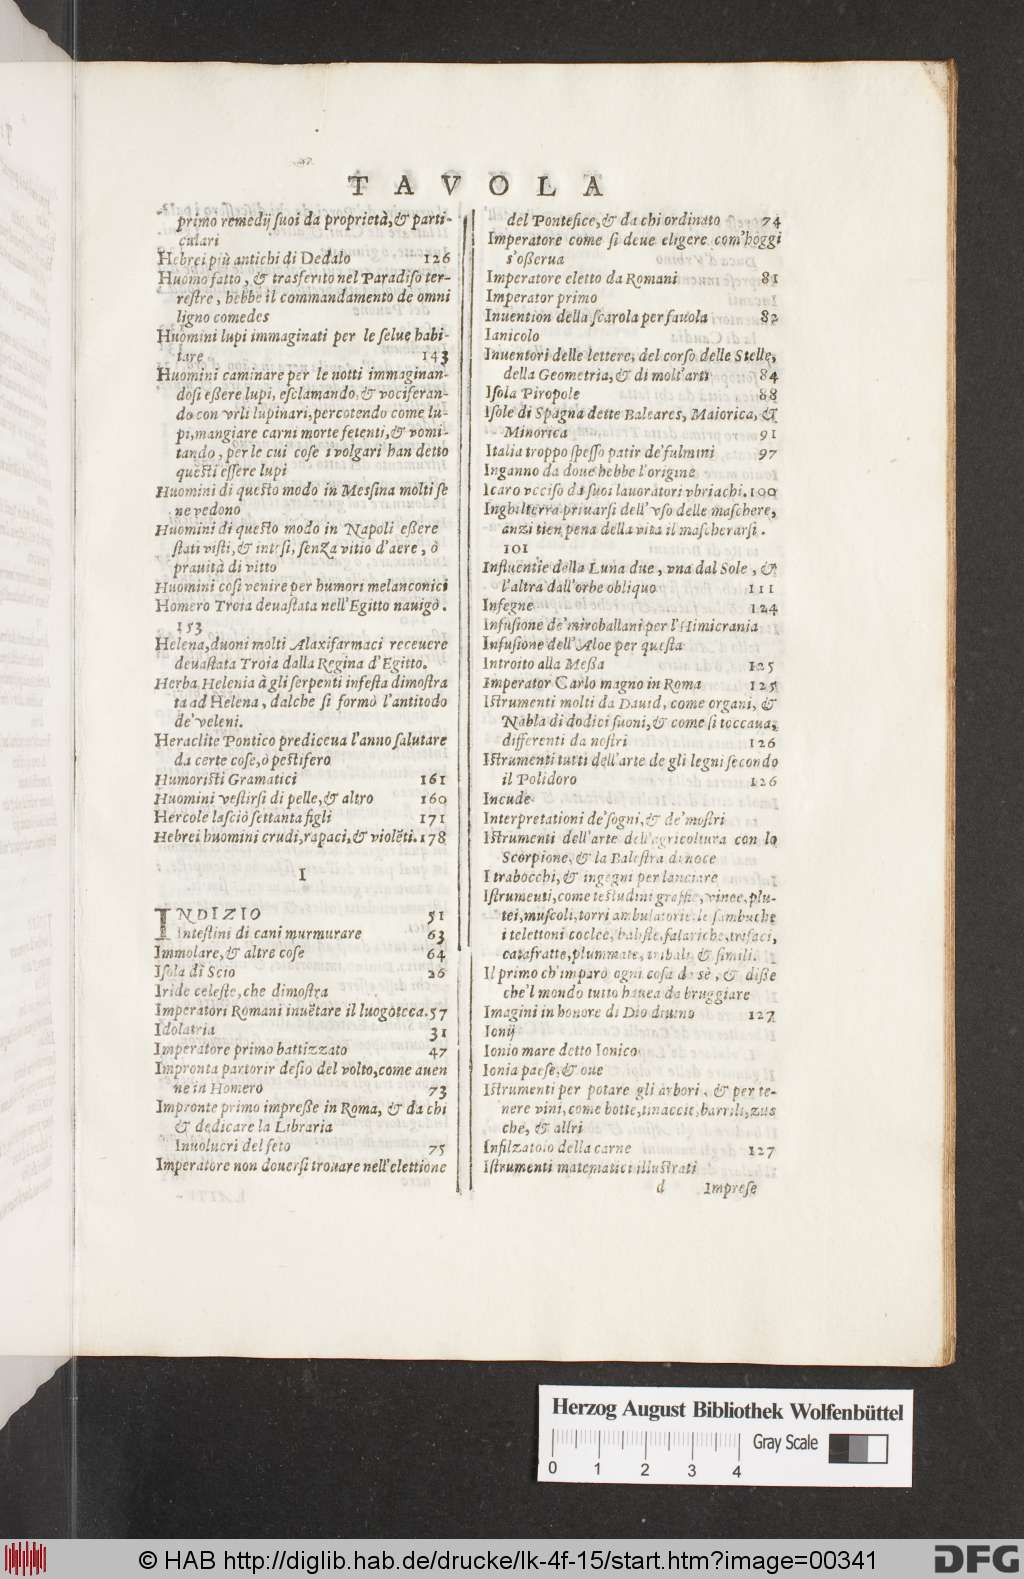 TAVOLA
primo remedij ſuoi da proprietà,& parti-
culari
Hebrei più antichi di Dedalo 126
Huomo fatto, & trasferito nel Paradiſo ter-
reſtre, hebbe il commandamento de omni
ligno comedes
Huomini lupi immaginati per le ſelue habi-
tare 143
Huomini caminare per le notti immaginan-
doſi eßere lupi, eſclamando,& vociferan-
do con vrli lupinari,percotendo come lu-
pi,mangiare carni morte fetenti,& vomi-
tando, per le cui coſe i volgari han detto
queſti eſſere lupi
Huomini di queſto modo in Meſſina molti ſe
ne vedono
Huomini di queſto modo in Napoli eßere
ſtati viſti,& inteſi, ſenza vitio d'aere, ò
prauità di vitto
Huomini coſi venire per humori melanconici
Homero Troia deuaſtata nell'Egitto nauigò.
153
Helena, duoni molti Alaxifarmaci receuere
deuaſtata Troia dalla Regina d'Egitto.
Herba Helenia à gli ſerpenti infeſta dimoſtra
ta ad Helena, dalche ſi formò l'antitodo
de'veleni.
Heraclite Pontico prediceua l'anno ſalutare
da certe coſe,ò peſtifero
Humoriſti Gramatici 161
Huomini veſtirſi di pelle,& altro 160
Hercole laſciò ſettanta figli 171
Hebrei huomini crudi,rapaci,& violẽti.178
I
INDIZIO 51
Inteſtini di cani murmurare 63
Immolare,& altre coſe 64
Iſola di Scio 26
Iride celeſte,che dimoſtra
Imperatori Romani inuẽtare il luogoteca.57
Idolatria 31
Imperatore primo battizzato 47
Impronta partorir deſio del volto,come auen
ne in Homero 73
Impronte primo impreſſe in Roma, & da chi
& dedicare la Libraria
Inuolucri del ſeto 75
Imperatore non douerſi trouare nell'elettione
del Pontefice,& da chi ordinato 74
Imperatore come ſi deue eligere com'hoggi
s'oßerua
Imperatore eletto da Romani 81
Imperator primo
Inuention della ſcarola per fauola 82
Ianicolo
Inuentori delle lettere, del corſo delle Stelle,
della Geometria,& di molt'arti 84
Iſola Piropole 88
Iſole di Spagna dette Baleares, Maiorica, &
Minorica 91
Italia troppo ſpeſſo patir de'fulmini 97
Inganno da doue hebbe l'origine
Icaro vcciſo da ſuoi lauoratori vbriachi.100
Inghilterra priuarſi dell'vſo delle maſchere,
anzi tien pena della vita il maſcherarſi.
101
Influentie della Luna due, vna dal Sole, &
l'altra dall'orbe obliquo 111
Inſegne 124
Infuſione de'miroballani per l'Himicrania
Infuſione dell'Aloe per queſta
Introito alla Meßa 125
Imperator Carlo magno in Roma 125
Iſtrumenti molti da Dauid, come organi, &
Nabla di dodici ſuoni,& come ſi toccaua,
differenti da noſtri 126
Iſtrumenti tutti dell'arte de gli legni ſecondo
il Polidoro 126
Incude
Interpretationi de'ſogni,& de'moſtri
Iſtrumenti dell'arte dell'agricoltura con lo
Scorpione, & la Baleſtra di noce
I trabocchi,& ingegni per lanciare
Iſtrumenti,come teſtudini graffie, vinee,plu-
tei,muſcoli,torri ambulatorie,le ſambuche
i telettoni coclee,baliſte,falariche,triſaci,
catafratte,plummate, tribali, & ſimili.
Il primo ch'imparò ogni coſa da sè, & diſſe
che'l mondo tutto hauea da bruggiare
Imagini in honore di Dio diuino 127
Ionij
Ionio mare detto Ionico
Ionia paeſe,& oue
Iſtrumenti per potare gli arbori, & per te-
nere vini,come botte,tinaccie,barrili,zuc
che, & altri
Infilzatoio della carne 127
Iſtrumenti matematici illuſtrati
d Impreſe
Herzog August Bibliothek Wolfenbüttel
Gray Scale
0 1 2 3 4
© HAB http://diglib.hab.de/drucke/lk-4f-15/start.htm?image=00341
DFG